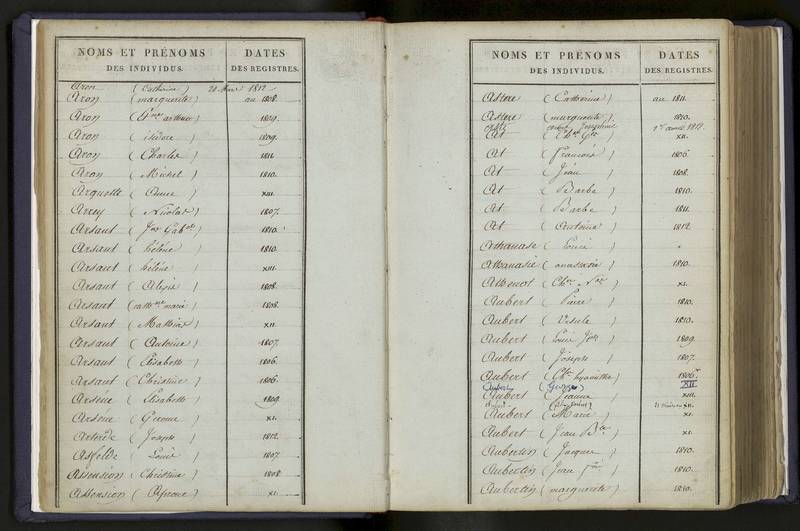 NOMS ET PRÉNOMS
DES INDIVIDUS.
DATES
DES REGISTRES.
Aron (Catherine) 20 Mars 1812
Aron (marguerite) an 1808.
Aron 1809.
Aron (isidore) 1809.
Aron (Charles) 1811.
Aron (Michel) 1810.
Arquette (Anne) XIII.
Arrey (Nicolas) 1807.
Arsant 1810.
Arsant (hélène) 1810.
Arsant (hélène) XIII.
Arsant (Alexis) 1808.
Arsant (cath.ne marie) 1808.
Arsant (Mathias) XII.
Arsant (Antoine) 1807.
Arsant (Elisabeth) 1806.
Arsant (Christine) 1806.
Arsene (Elisabeth) 1809
Arsene XI.
(Joseph) 1812
Asfelde (Louis) 1807
Assension (Christine) 1808
Assension XI.
NOMS ET PRÉNOMS
DES INDIVIDUS.
DATES
DES REGISTRES.
Astore (Catherine) an 1811.
Astore (marguerite) 1810.
Josephine 1er avril 1812.
At XII.
At (François) 1806.
At (Jean) 1808.
At (Barbe) 1810.
At (Barbe) 1811.
At (Antoine) 1812
Athanase (Louis)
Athanasie (anastasie) 1810.
XI.
Aubert (Pierre) 1810.
Aubert (Ursule) 1810.
Aubert (Louis Jph) 1809.
Aubert (Joseph) 1807.
Aubert (Ch. hyacinthe) 1806.
Aubert XII
Aubert (Jeanne) XIII.
XII.
Aubert (Marie) XI.
Aubert (Jean Bte) XI.
Aubertin (Jacques) 1810.
Aubertin (Jean) 1810.
Aubertin (marguerite) 1810.